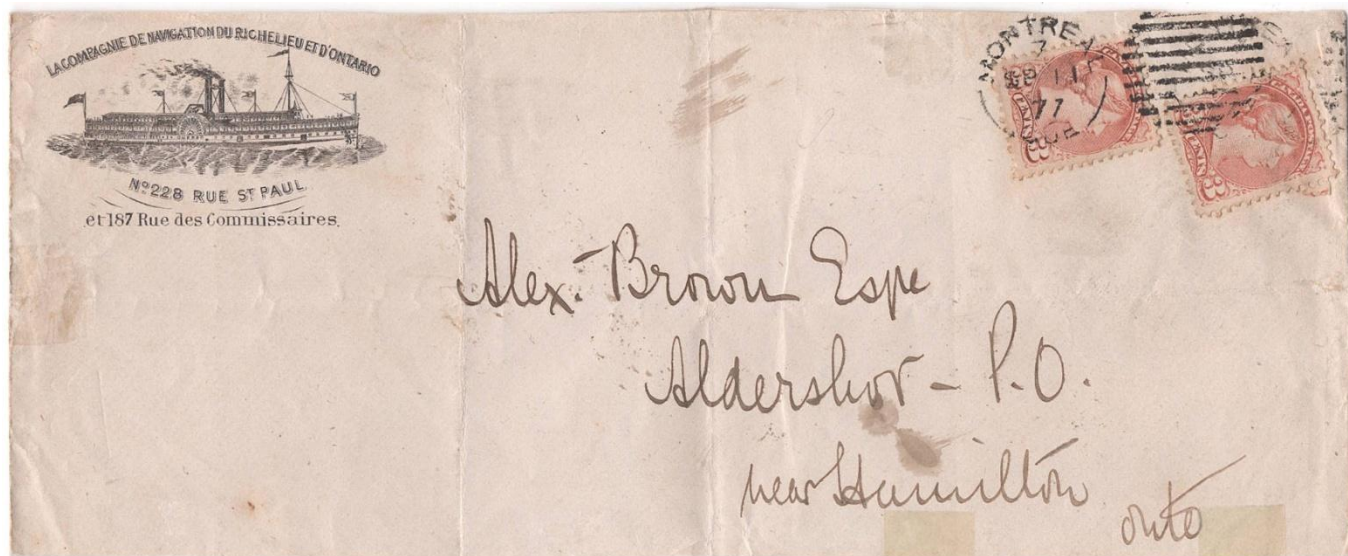 LA COMPAGNIE DE NAVIGATION DU RICHELIEU ET D'ONTARIO
No 228 RUE ST PAUL.
et 187 Rue des Commissaires.
MONTREAL
7
SEP 11
77
QUE
Alex. Brown Esqe
Aldershot - P.O.
near Hamilton
Onto